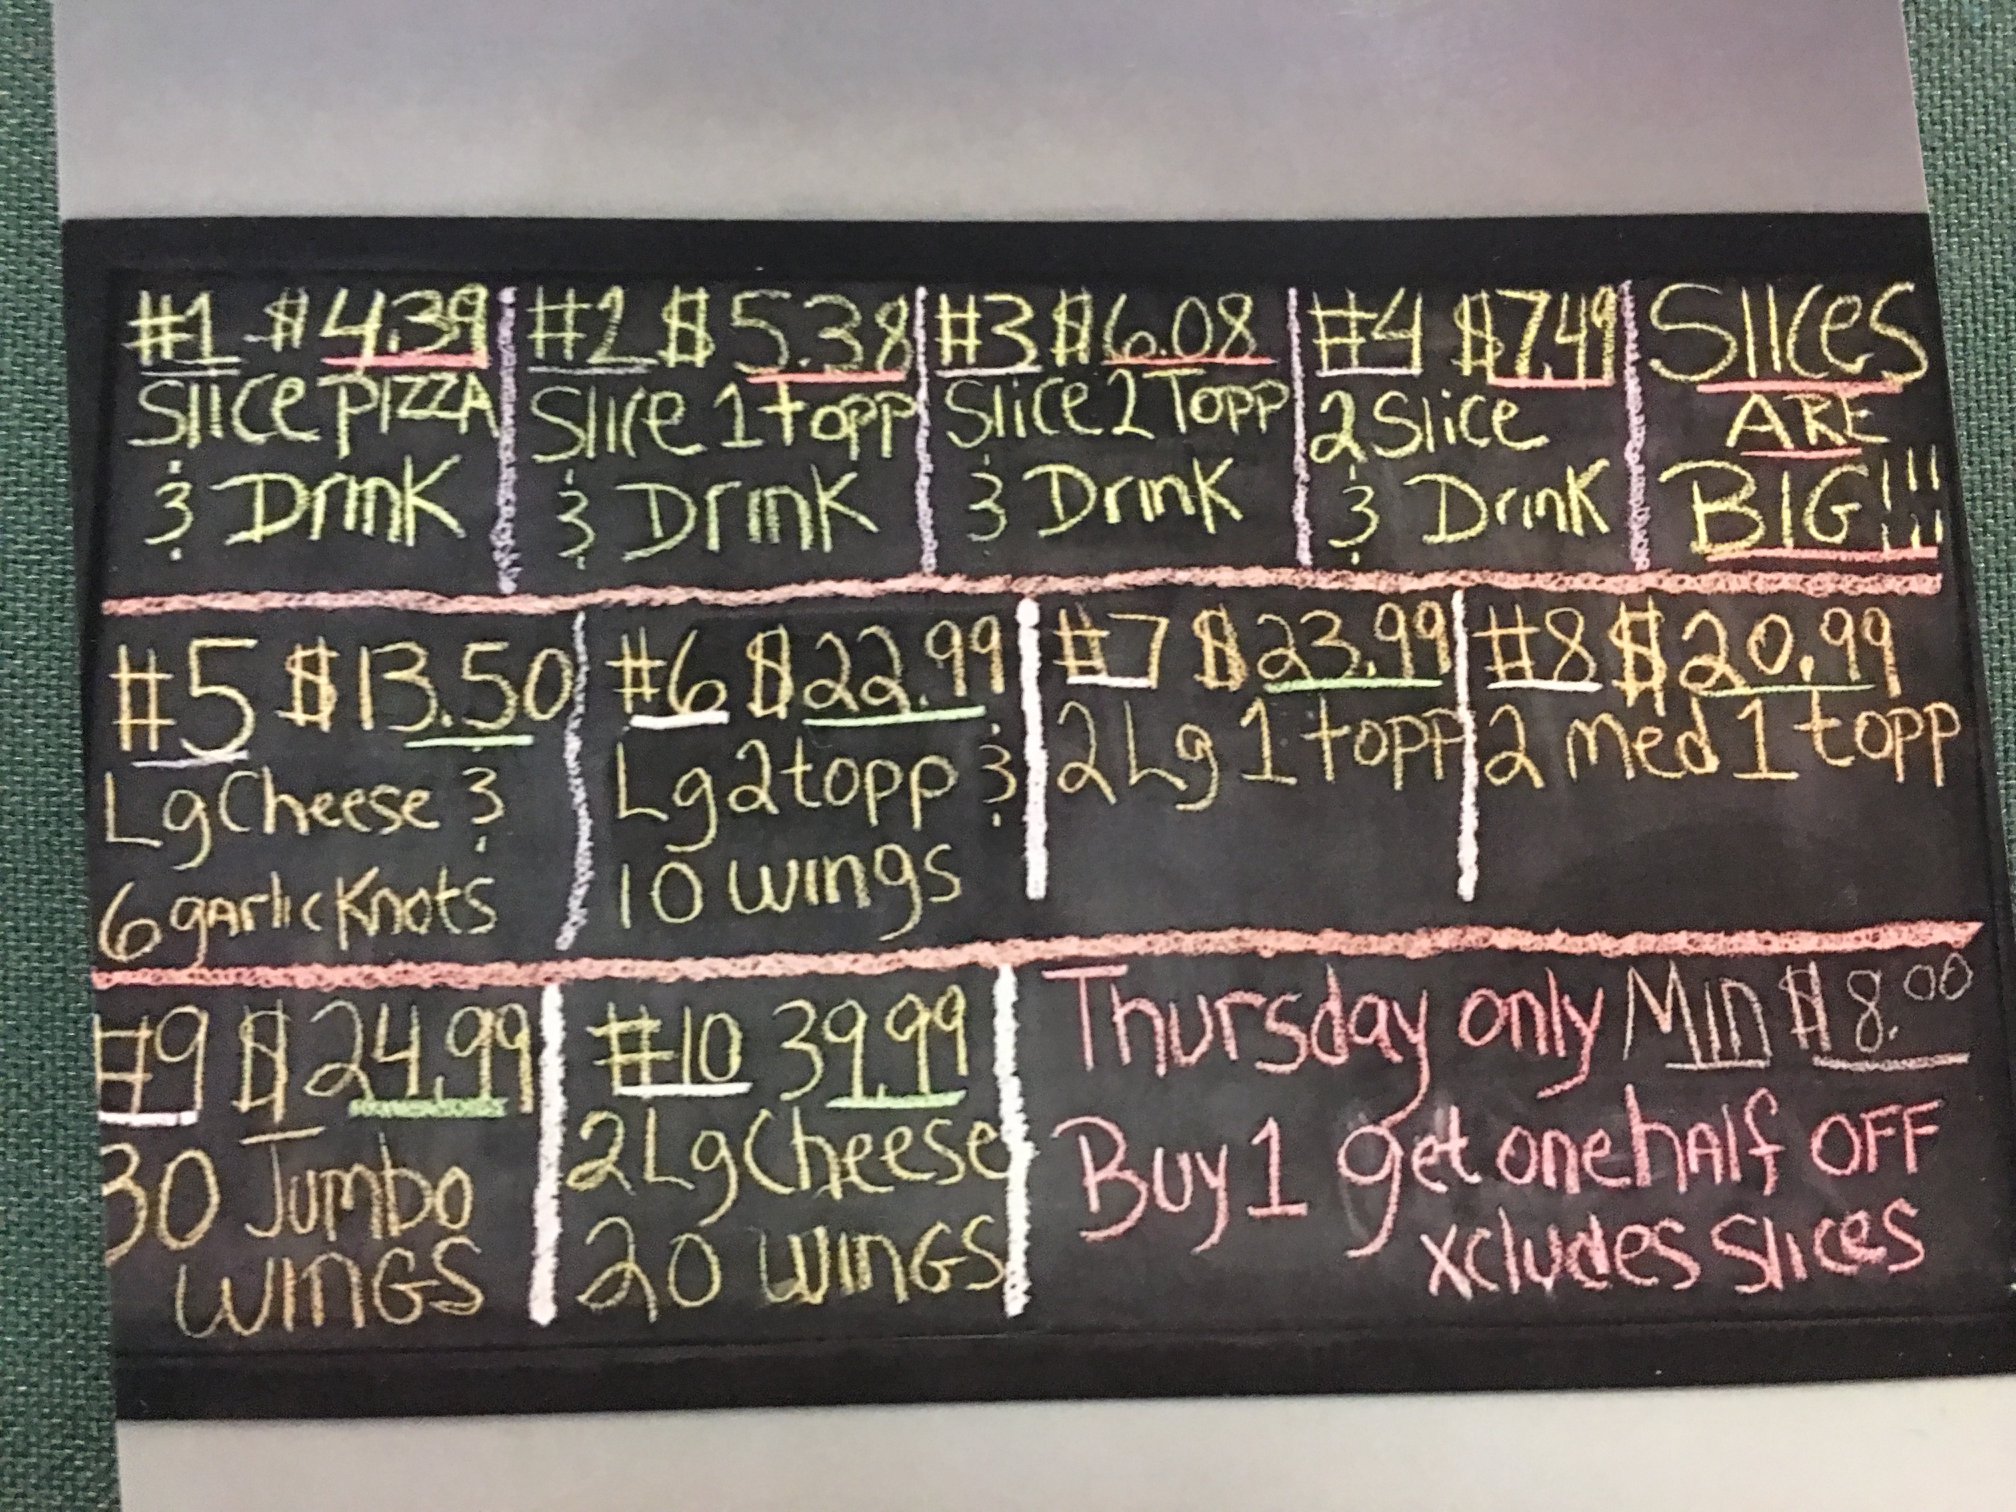 #1 $4.39
Slice PIZZA
& Drink
#2 $5.38
Slice 1 topp
& Drink
#3 $6.08
Slice 2 Topp
& Drink
#4 $7.49
2 Slice
& Drink
SlIceS
ARE
BIG!!!
#5 $13.50
Lg Cheese &
6 garlic Knots
#6 $22.99
Lg 2 topp &
10 wings
#7 $23.99
2 Lg 1 topp
#8 $20.99
2 med 1 topp
#9 $24.99
30 Jumbo
WINGS
#10 39.99
2 Lg Cheese
20 WINGS
Thursday only Min $8.00
Buy 1 get one half OFF
xcludes Slices